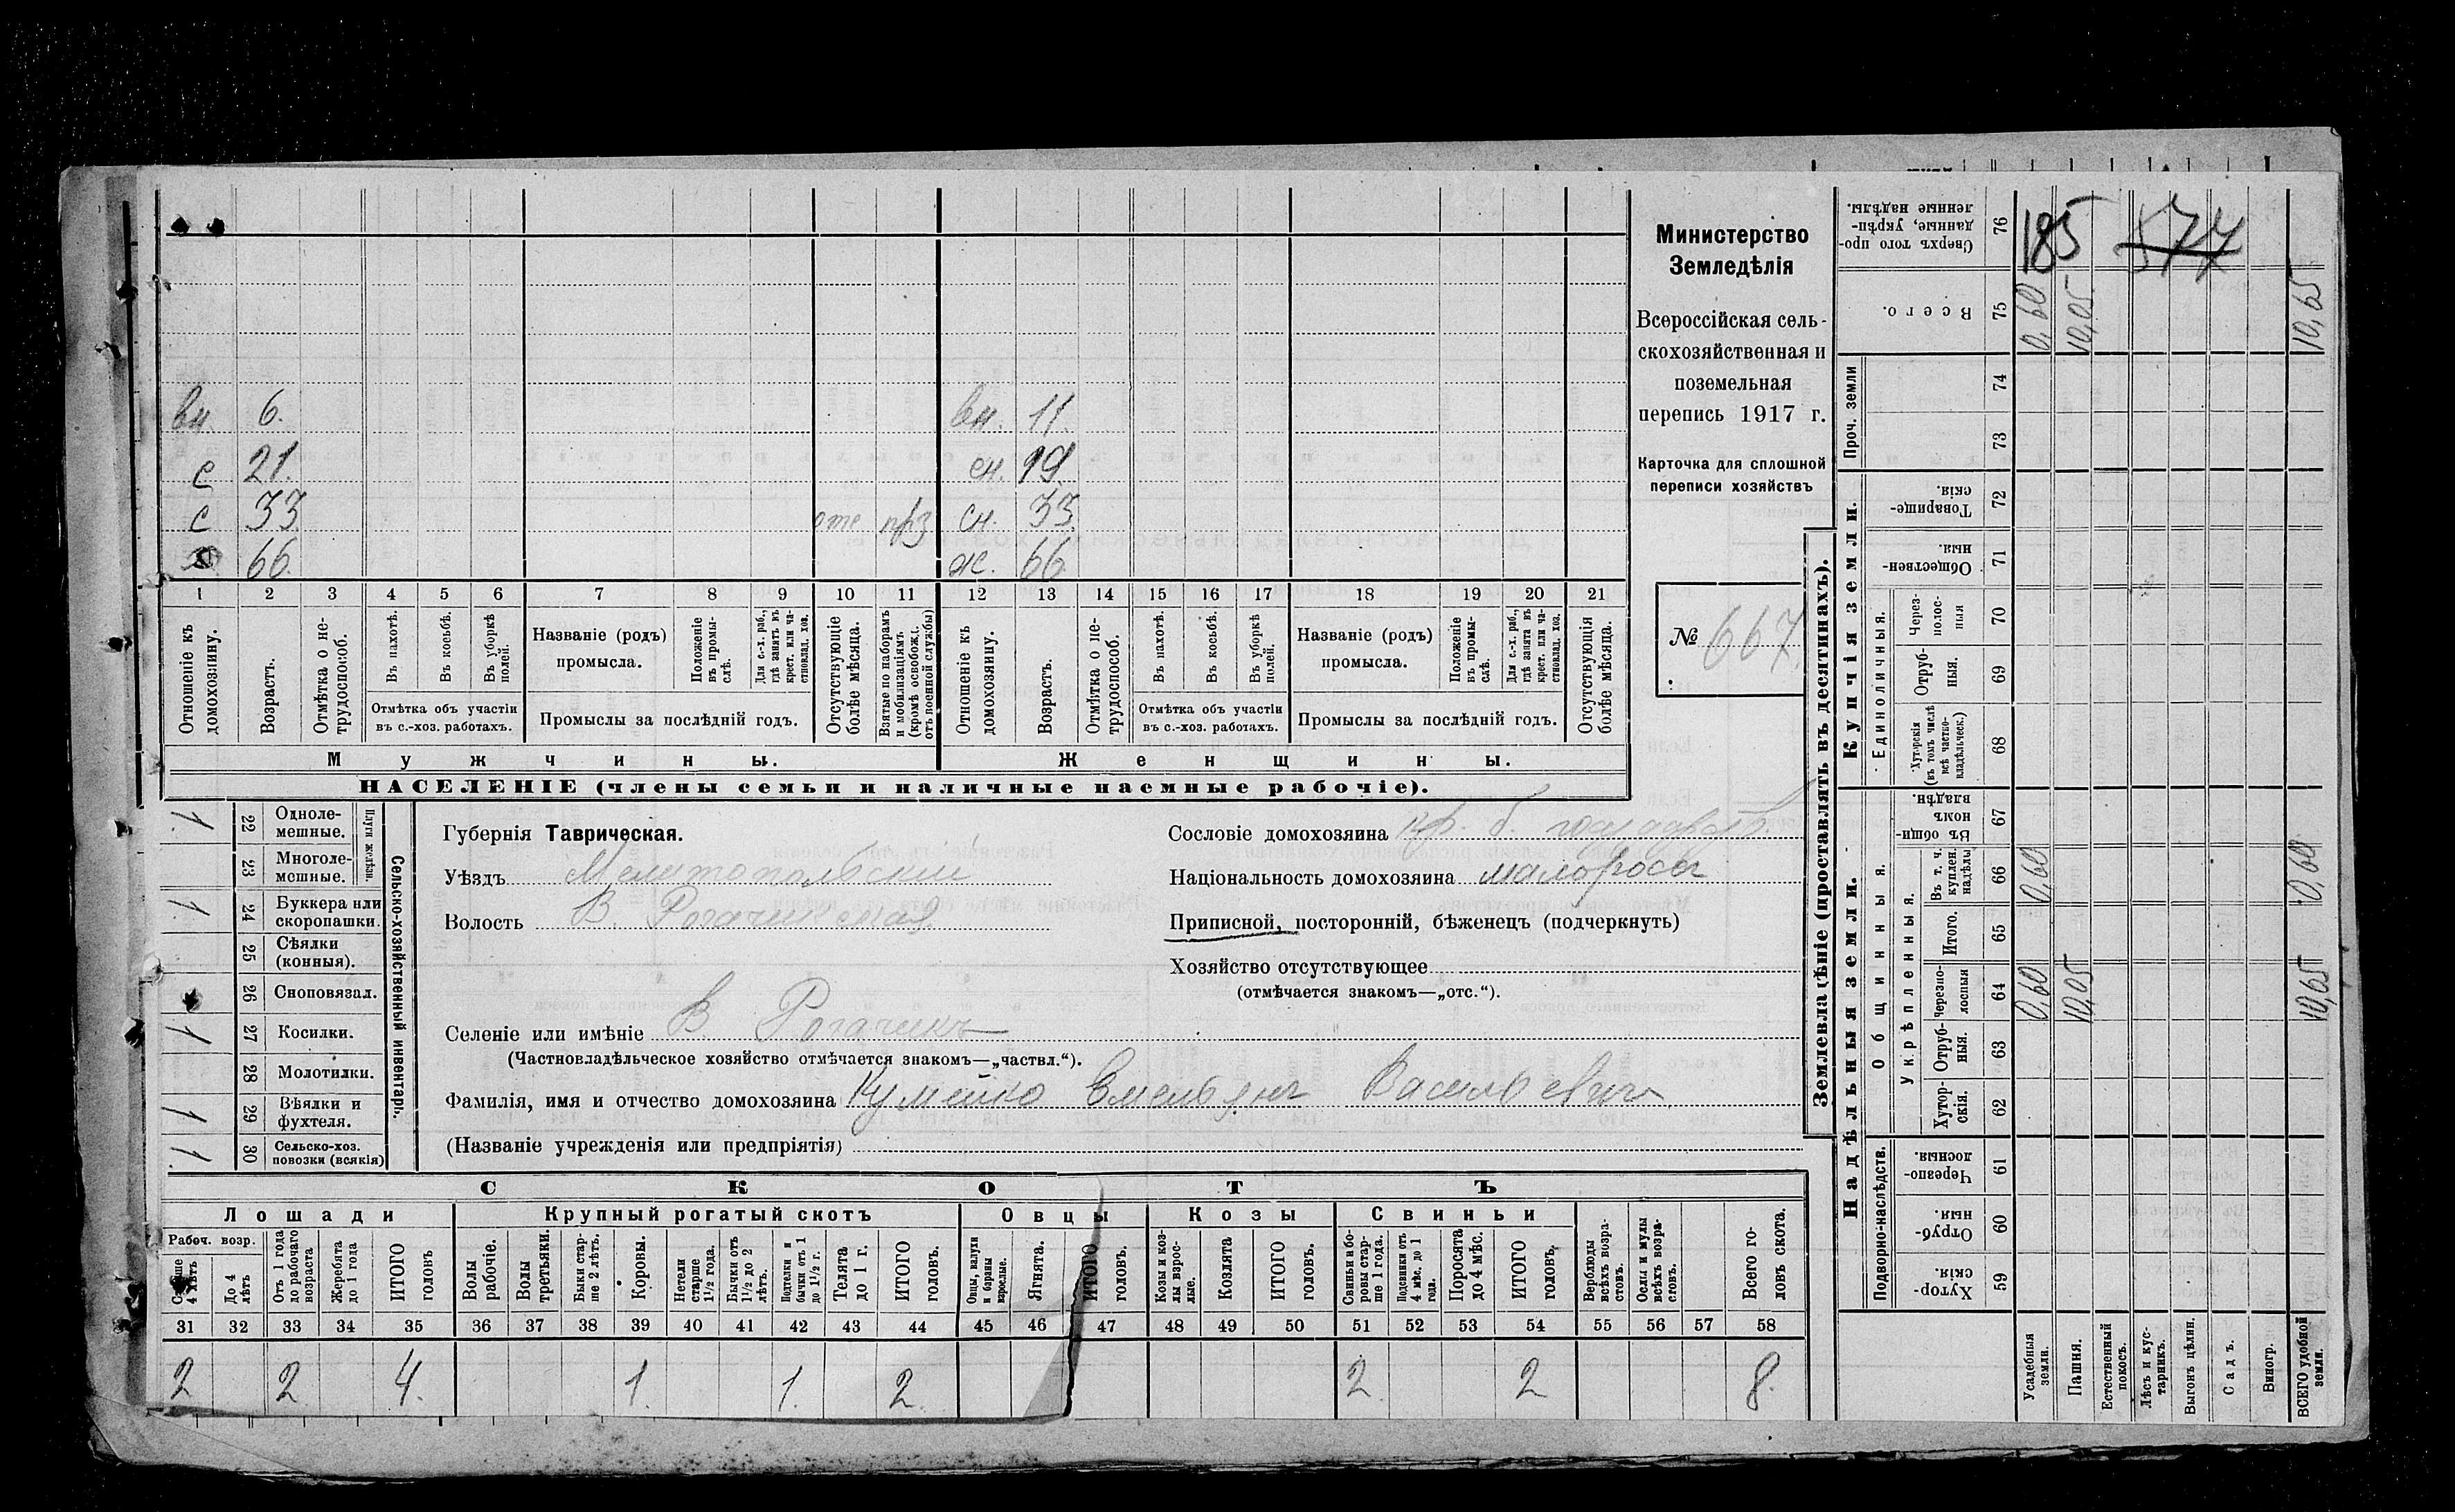 Министерство
Земледѣлія
Всероссійская сель-
скохозяйственная и
поземельная
перепись 1917 г.
Карточка для сплошной
переписи хозяйствъ
№ 667.
вн. 6. вн. 11.
с 21. сн. 19.
с 33 отс прз сн. 33.
66. ж. 66.
1 2 3 4 5 6 7 8 9 10 11 12 13 14 15 16 17 18 19 20 21
Отношеніе къ домохозяину.
Возрастъ.
Отмѣтка о не-трудоспособ.
Въ пахотѣ.
Въ косьбѣ.
Въ уборкѣ полей.
Отмѣтка объ участіи въ с.-хоз. работахъ.
Названіе (родъ) промысла.
Положеніе въ промы-слѣ.
Для с.-х. раб., гдѣ занятъ въ крест. или ча-стновлад. хоз.
Промыслы за послѣдній годъ.
Отсутствующіе болѣе мѣсяца.
Взятые по наборамъ и мобилизаціямъ (кромѣ освобожд. отъ военной службы)
Отношеніе къ домохозяину.
Возрастъ.
Отмѣтка о не-трудоспособ.
Въ пахотѣ.
Въ косьбѣ.
Въ уборкѣ полей.
Отмѣтка объ участіи въ с.-хоз. работахъ.
Названіе (родъ) промысла.
Положеніе въ промы-слѣ.
Для с.-х. раб., гдѣ занята въ крест. или ча-стновлад. хоз.
Промыслы за послѣдній годъ.
Отсутствующія болѣе мѣсяца.
Мужчины. Женщины.
НАСЕЛЕНІЕ (члены семьи и наличные наемные рабочіе).
Сельско-хозяйственный инвентарь.
Плуги желѣзн.
1 22 Одноле-мешные.
23 Многоле-мешные.
1 24 Буккера или скоропашки.
25 Сѣялки (конныя).
26 Сноповязал.
1 27 Косилки.
28 Молотилки.
1 29 Вѣялки и фухтеля.
1 30 Сельско-хоз. повозки (всякія)
Губернія Таврическая.
Уѣздъ Мелитопольскій
Волость В. Рогачикская
Селеніе или имѣніе В Рогачикъ
(Частновладѣльческое хозяйство отмѣчается знакомъ—„частвл.“).
Фамилія, имя и отчество домохозяина Кумейко Емельянъ Васильевичъ
(Названіе учрежденія или предпріятія)
Сословіе домохозяина кр. б. государств.
Національность домохозяина малороссъ
Приписной, посторонній, бѣженецъ (подчеркнуть)
Хозяйство отсутствующее
(отмѣчается знакомъ—„отс.“).
СКОТЪ
Лошади Крупный рогатый скотъ Овцы Козы Свиньи
Рабоч. возр.
4 лѣтъ
До 4 лѣтъ
Отъ 1 года до рабочаго возраста
Жеребята до 1 года
ИТОГО головъ
Волы рабочіе.
Волы третьяки.
Быки стар-ше 2 лѣтъ.
Коровы.
Нетели старше 1½ года.
Бычки отъ 1½ до 2 лѣтъ.
Подтелки и бычки отъ 1 до 1½ г.
Телята до 1 г.
ИТОГО головъ.
Овцы, валухи и бараны взрослые.
Ягнята.
ИТОГО головъ.
Козы и коз-лы взрос-лые.
Козлята
ИТОГО головъ.
Свиньи и бо-ровы стар-ше 1 года.
Подсвинки отъ 4 мѣс. до 1 года.
Поросята до 4 мѣс.
ИТОГО головъ.
Верблюды всѣхъ возра-стовъ.
Ослы и мулы всѣхъ возра-стовъ.
Всего го-ловъ скота.
31 32 33 34 35 36 37 38 39 40 41 42 43 44 45 46 47 48 49 50 51 52 53 54 55 56 57 58
2 2 4. 1. 1. 2. 2 2 8.
Землевладѣніе (проставлять въ десятинахъ).
Сверхъ того про-данные, укрѣп-ленные надѣлы. 76 185 577
Всего. 75 0,60 10,05. 10,65
Проч. земли
74
73
Купчія земли.
Товарище-скія. 72
Обществен-ныя. 71
Единоличныя.
Через-полос-ныя 70
Отруб-ныя. 69
Хуторскія (въ томъ числѣ всѣ частно-владѣльческ.) 68
Надѣльныя земли.
Общинныя.
Въ общи-номъ владѣн. 67
Укрѣпленныя.
Въ т. ч. куплен. надѣлы 66 0,60 0,60
Итого. 65
Черезпо-лосныя 64 0,60 10,05 10,65
Отруб-ныя. 63
Хутор-скія. 62
Подворно-наслѣдств.
Черезпо-лосныя. 61
Отруб-ныя. 60
Хутор-скія. 59
Усадебныя земли.
Пашня.
Естественный покосъ.
Лѣсъ и кус-тарникъ.
Выгонъ цѣлин.
Садъ.
Виногр.
ВСЕГО удобной земли.